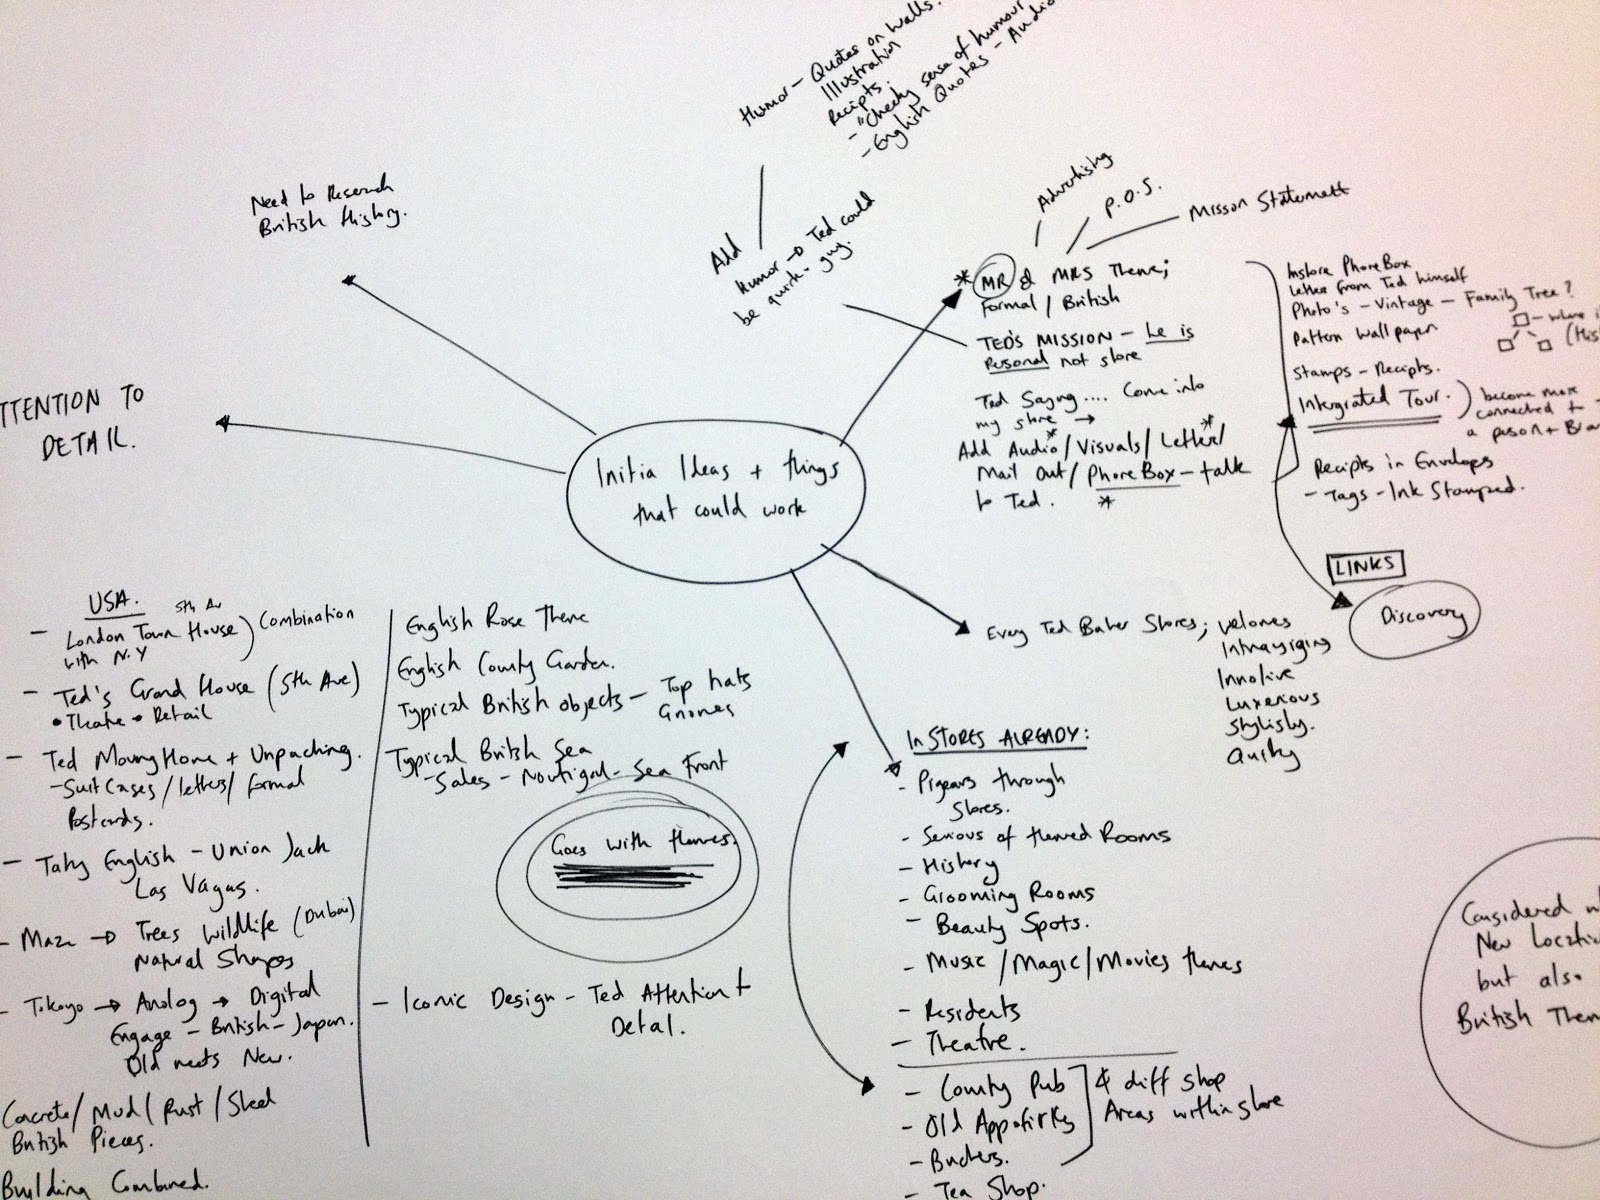 Humor - Quotes on Walls.
Illustration
Recipts.
- "Cheeky sense of humour
- English Quotes - Audio
Need to Research
British History.
Add
Humor → Ted could
be quirky guy.
Advertising
P.O.S.
Misson Statement
* MR & MRS Theme;
Formal / British
TED'S MISSION - he is
Personal not store
Ted Saying .... Come into
my store →
Add Audio*/Visuals/Letter*/
Mail Out/PhoneBox - talk
to Ted. *
Instore PhoneBox
Letter from Ted himself
Photo's - Vintage - Family Tree?
- where i
(His
Pattern Wallpaper
Stamps - Recipts.
Intergrated Tour.
become more
connected to
a person + Bra
Recipts in Envelops
- Tags - Ink Stamped.
LINKS
Discovery
TTENTION TO
DETAIL.
Initia Ideas + things
that could work
Every Ted Baker Stores;
Intrayiging
Luxerious
Stylishy.
Quirky
USA.
5th Av
- London Town House
with N.Y
Combination
- Ted's Grand House (5th Ave)
• Theatre → Retail
- Ted Moving Home + Unpacking.
- Suit Cases / letters / formal
Postcards.
- English - Union Jack
Las Vagas.
- Maze → Trees Wildlife (Dubai)
Natural Shapes
- Tokoyo → Anolog → Digital
Engage - British - Japan.
Old meets New.
Concrete / Mud / Rust / Steel
British Pieces.
Building Combined.
English Rose Theme
English County Garden.
Typical British objects - Top hats
Gnomes
Typical British Sea
- Sales - Noutigal - Sea Front
Goes with themes.
- Iconic Design - Ted Attention t
Detal.
IN STORES ALREADY:
- through
Stores.
- Serious of themed Rooms
- History
- Grooming Rooms
- Beauty Spots.
- Music / Magic / Movies themes
- Residents
- Theatre.
- County Pub
- Old
-
- Tea Shop.
4 diff shop
Areas within store
Considered
New Locatio
but also
British Them